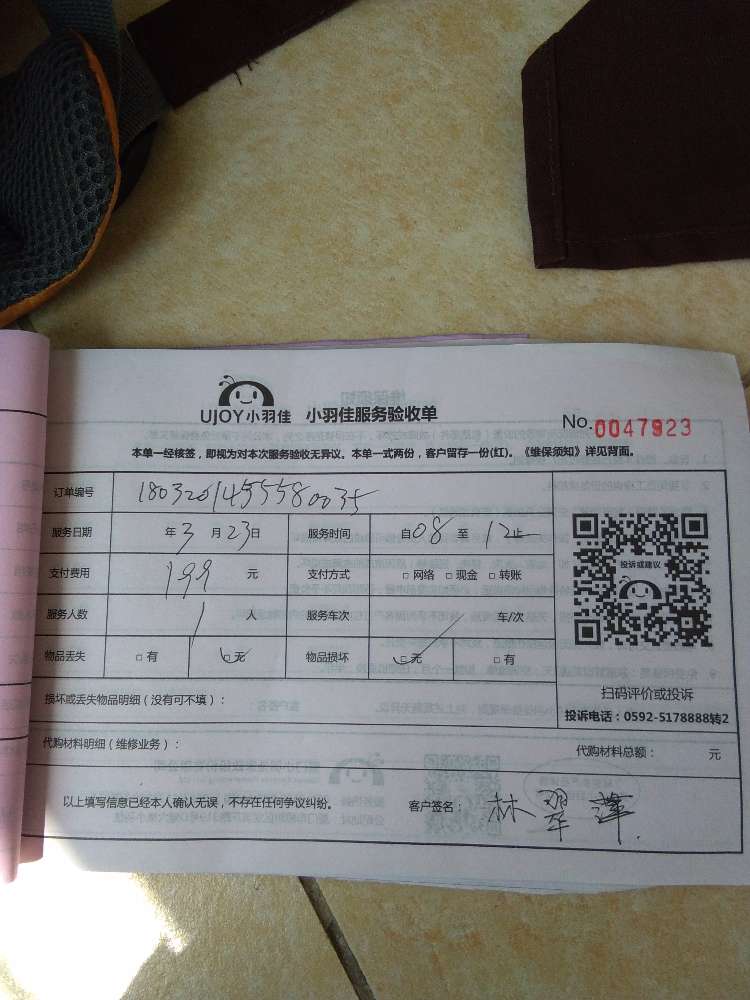 UJOY小羽佳 小羽佳服务验收单 No.0047923
本单一经核签，即视为对本次服务验收无异议。本单一式两份，客户留存一份(红)。《维保须知》详见背面。
订单编号 1803201455580035
服务日期 年3月23日 服务时间 自08至12止
支付费用 199 元 支付方式 □网络 □现金 □转账
服务人数 1 人 服务车次 车/次
物品丢失 □有 □无 物品损坏 □无 □有
投诉或建议
扫码评价或投诉
投诉电话：0592-5178888转2
损坏或丢失物品明细（没有可不填）：
代购材料明细（维修业务）： 代购材料总额： 元
以上填写信息已经本人确认无误，不存在任何争议纠纷。 客户签名： 林翠